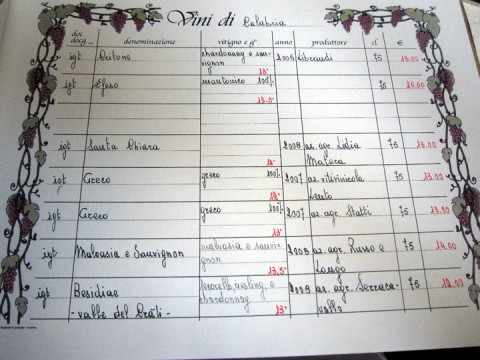 Vini di Calabria
doc docg denominazione vitigno e g° anno produttore cl. €
igt Critone chardonnay e sauvignon 13° 2006 Librandi 75 15.00
igt Efeso mantonico 100% 13.5° 75 20.00
igt Santa Chiara 12° 2008 az. agr. Lidia Matera 75 13.00
igt Greco greco 100% 13° 2007 az. vitivinicola Lento 75 13.00
igt Greco greco 100% 13° 2007 az. agr. Statti 75
igt Malvasia e Sauvignon malvasia e sauvignon 13.5° az. agr. Russo e Longo 75 14.00
igt Besidiae - valle del Crati - riesling, e chardonnay 13° az. agr. Serracavallo 75